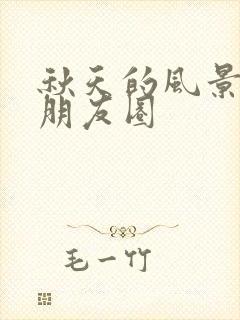 秋天的风景
朋友圈
毛一竹